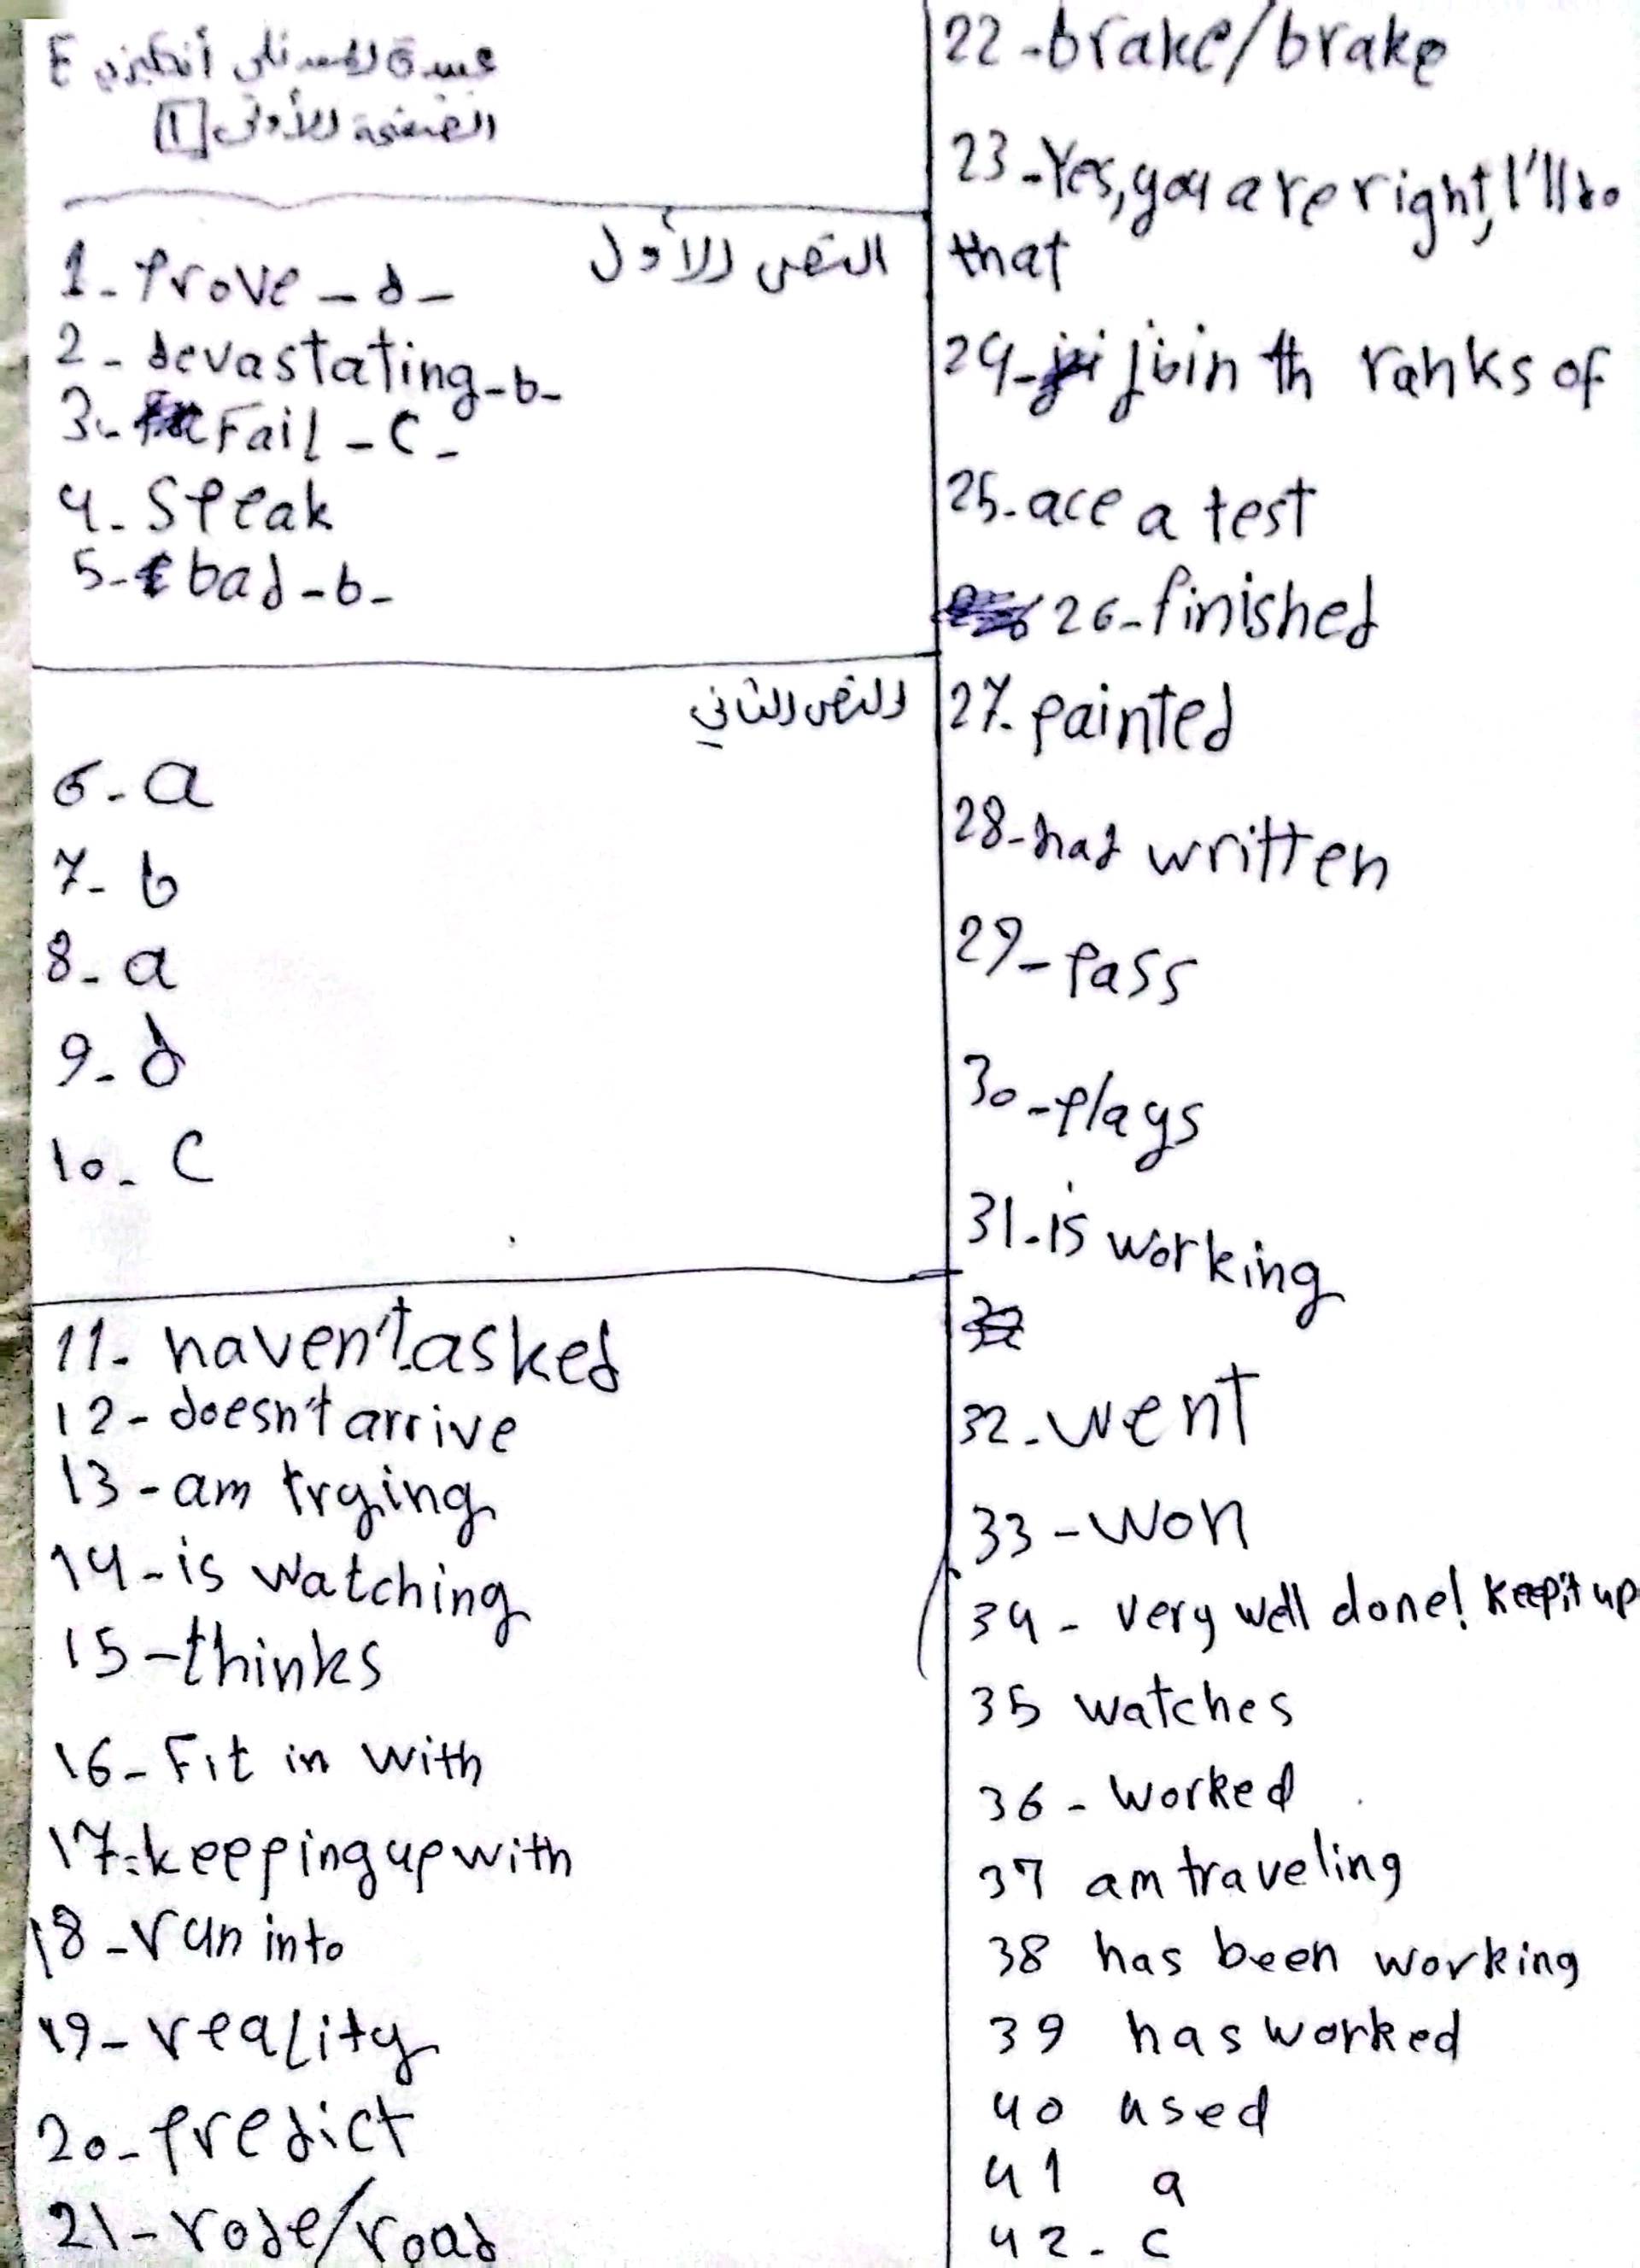 عبيدة أنكليزي E
الصفحة الأولى [1]
النص الأول
1- Prove - d -
2 - devastating - b -
3 - Fail - C -
4 - Speak
5 - bad - b -
النص الثاني
6 - a
7 - b
8 - a
9 - d
10 - C
11 - haven't asked
12 - doesn't arrive
13 - am trying
14 - is watching
15 - thinks
16 - Fit in with
17 - keeping up with
18 - run into
19 - reality
20 - predict
21 - rode/road
22 - brake/brake
23 - Yes, you are right, I'll do
that
24 - join th ranks of
25 - ace a test
26 - finished
27 - painted
28 - had written
29 - pass
30 - plays
31 - is working
32 - went
33 - won
34 - very well done! keep it up
35 watches
36 - worked
37 am traveling
38 has been working
39 has worked
40 used
41 a
42 - c